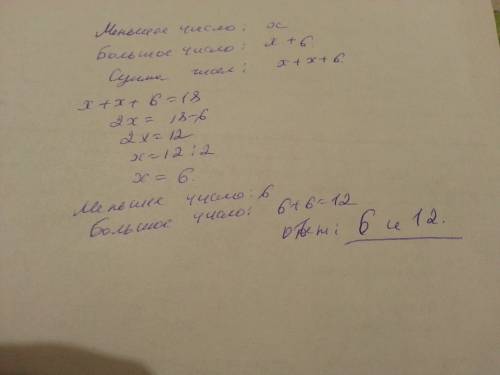 Меньшее число: x
Большое число: x + 6
Сумма чисел: x + x + 6
x + x + 6 = 18
2x = 18-6
2x = 12
x = 12 : 2
x = 6.
Меньшее число: 6
Большое число: 6+6=12
Ответ: 6 и 12.